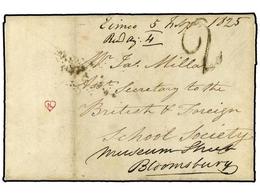 Eimeo 5 Sept 1825
4
2
Mr. Jas. Millar
Asst. Secretary to the
British & Foreign
School Society
Museum Street
Bloomsbury